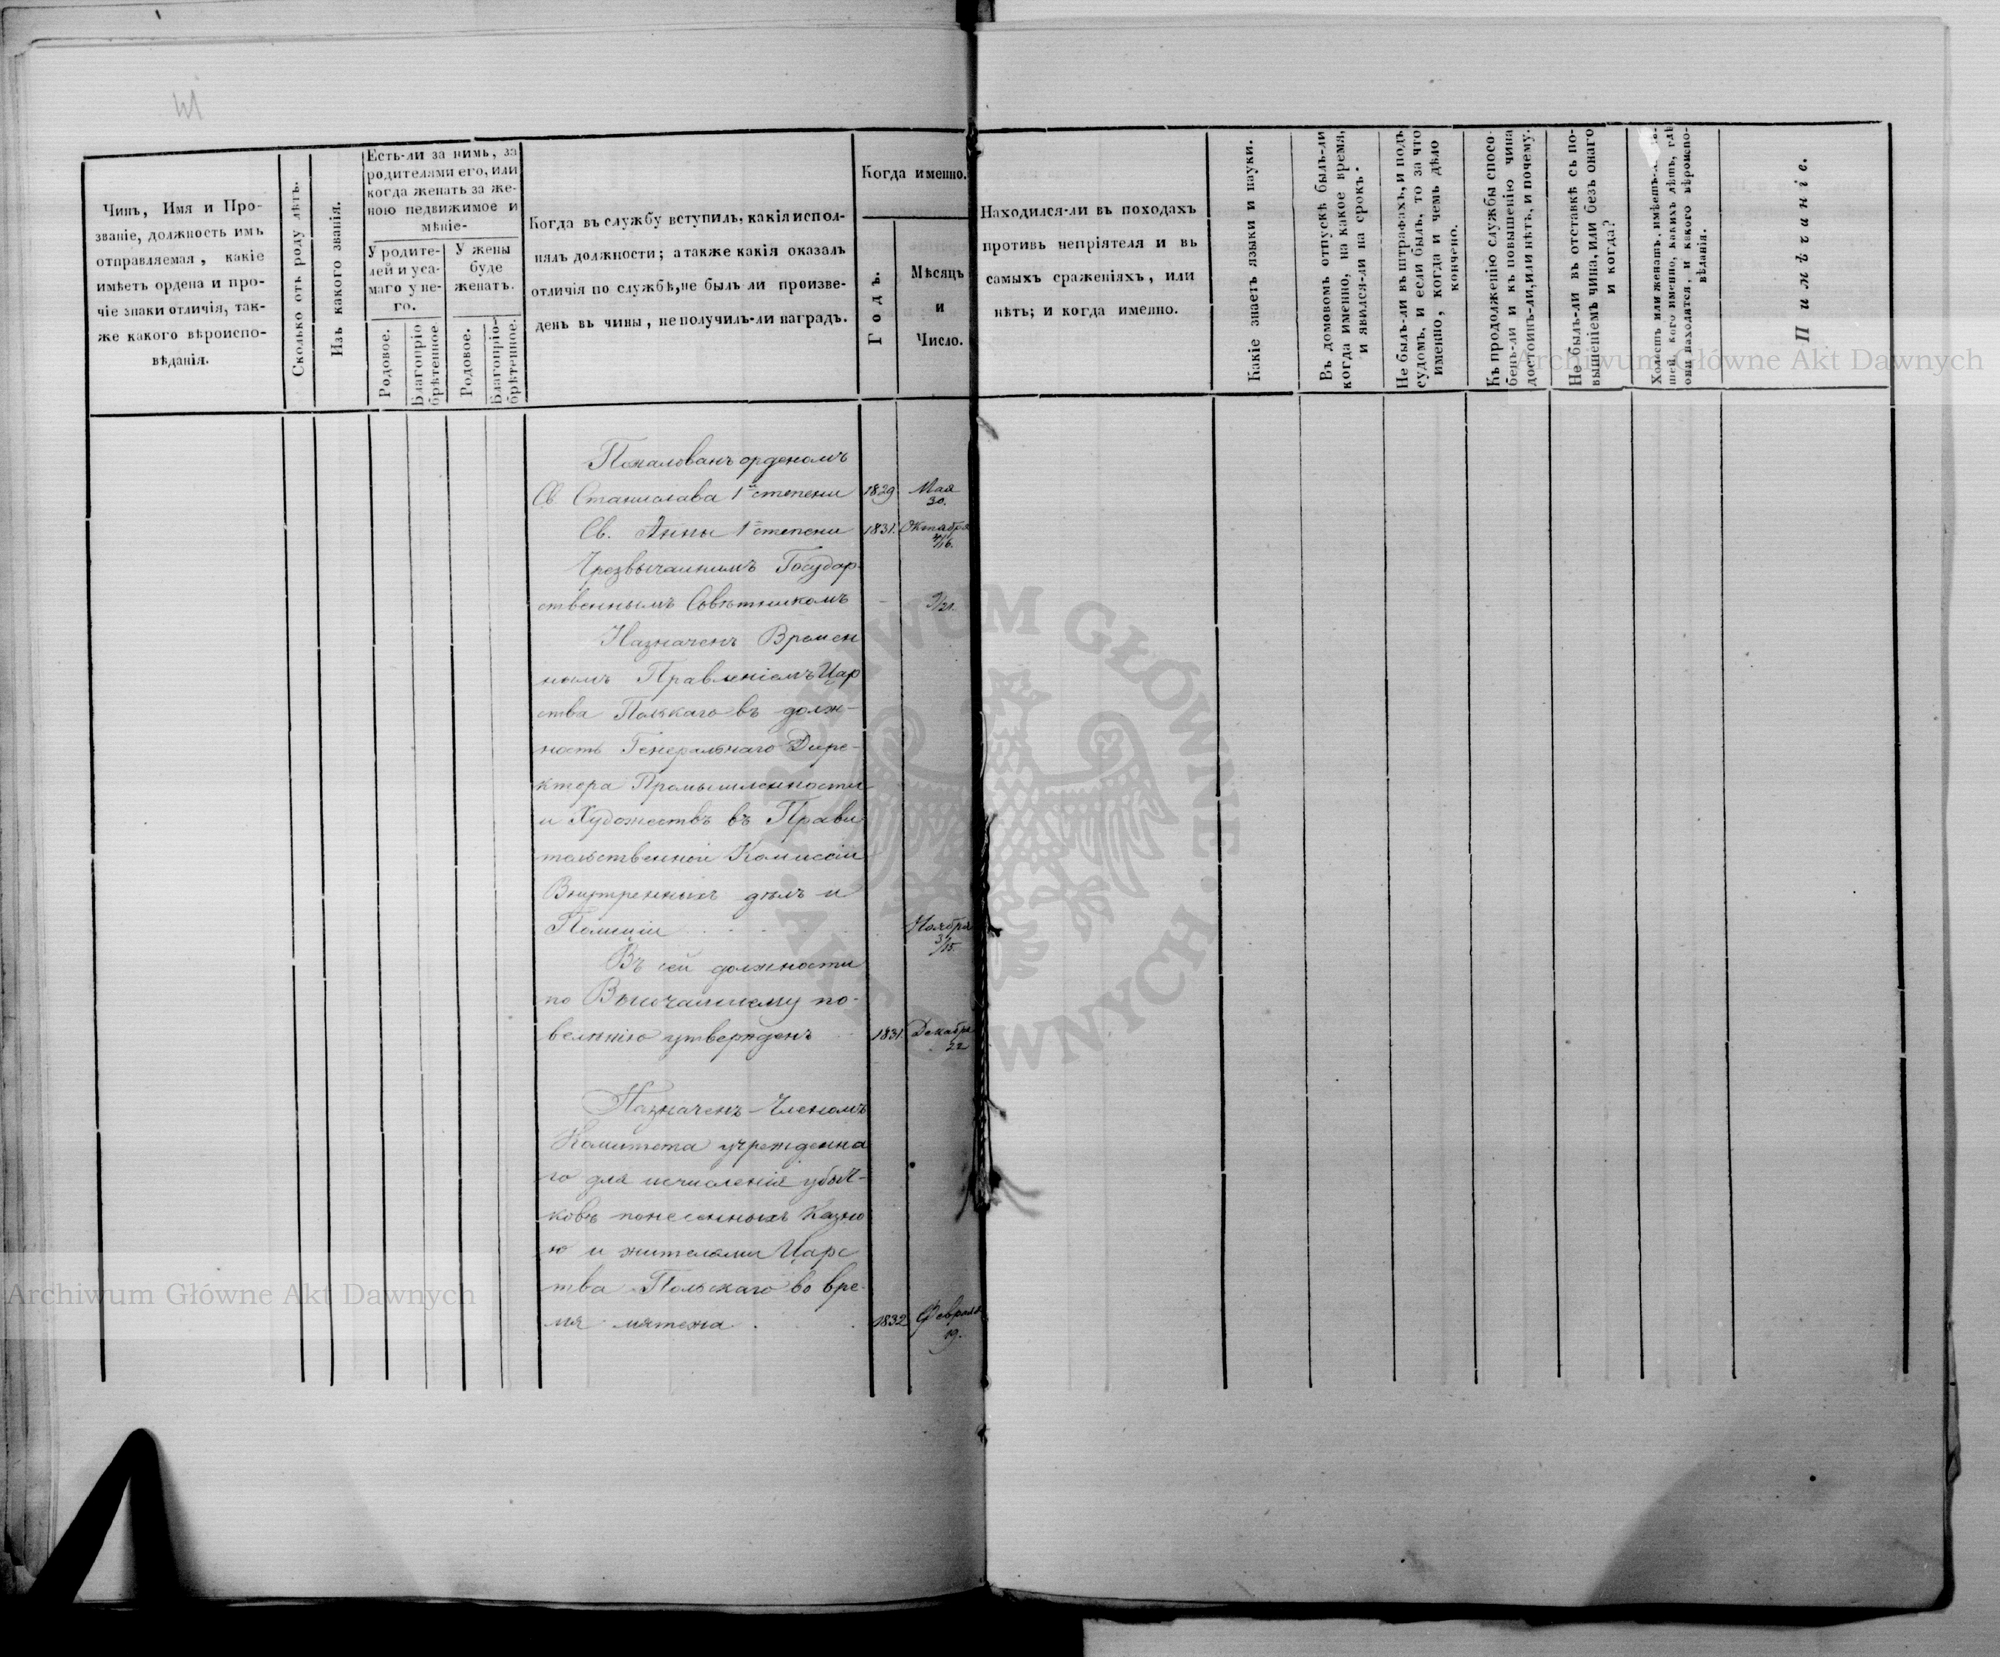 Чинъ, Имя и Про-
званіе, должность имъ
отправляемая, какіе
имѣетъ ордена и про-
чіе знаки отличія, так-
же какого вѣроиспо-
вѣданія.
Сколько отъ роду лѣтъ.
Изъ какого званія.
Есть-ли за нимъ, за
родителями его, или
когда женатъ за же-
ною недвижимое и
мѣніе-
У родите-
лей и уса-
маго у не-
го.
Родовое.
Благопріо
брѣтенное.
У жены
буде
женатъ.
Родовое.
Благопріо-
брѣтенное.
Когда въ службу вступилъ, какія испол-
нялъ должности; а также какія оказалъ
отличія по службѣ, не былъ ли произве-
денъ въ чины, не получилъ-ли наградъ.
Когда именно.
Годъ.
Мѣсяцъ
и
Число.
Пожалованъ орденомъ
Св. Станислава 1й степени 1829 Мая
30.
Св. Анны 1й степени 1831. Октября
4/16.
Чрезвычайнымъ Государ-
ственнымъ Совѣтникомъ - 9/21.
Назначенъ Времен
нымъ Правленіемъ Цар
ства Польскаго въ долж-
ность Генеральнаго Дире-
ктора Промышленности
и Художествъ въ Прави
тельственной Комиссіи
Внутреннихъ дѣлъ и
Полиціи Ноября
3/15.
Въ сей должности
по Высочайшему по-
велѣнію утвержденъ 1831. Декабря
22
Назначенъ Членомъ
Комитета учрежденна
го для исчисленія убыт-
ковъ понесенныхъ Казно
ю и жителями Царс
тва Польскаго во вре-
мя мятежа. 1832 Февраля
19.
Находился-ли въ походахъ
противъ непріятеля и въ
самыхъ сраженіяхъ, или
нѣтъ; и когда именно.
Какіе знаетъ языки и науки.
Въ домовомъ отпускѣ былъ-ли
когда именно, на какое время,
и явился-ли на срокъ.
Не былъ-ли въ штрафахъ, и подъ
судомъ, и если былъ, то за что
именно, когда и чемъ дѣло
кончено.
Къ продолженію службы спосо-
бенъ-ли и къ повышенію чина
достоинъ-ли, или нѣтъ, и почему.
Не былъ-ли въ отставкѣ съ по-
вышеніемъ чина, или безъ онаго
и когда?
Холостъ или женатъ, имѣетъ-
тей, кого именно, какихъ лѣтъ, гдѣ
они находятся, и какого вѣроиспо-
вѣданія.
Примѣчаніе.
Archiwum Główne Akt Dawnych
ARCHIWUM GŁÓWNE · AKT DAWNYCH ·
Archiwum Główne Akt Dawnych